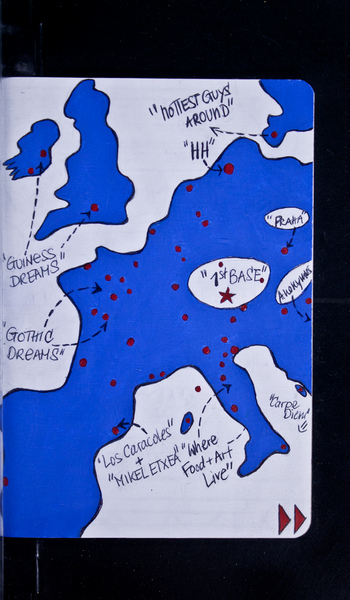 "HOTTEST GUYS
AROUND"
"HH"
"PRAHA"
"GUINESS
DREAMS"
"1st BASE"
"GOTHIC
DREAMS"
"Carpe
Diem"
"Los Caracoles"
+
"MIKEL ETXEA"
"Where
Food + Art
Live"